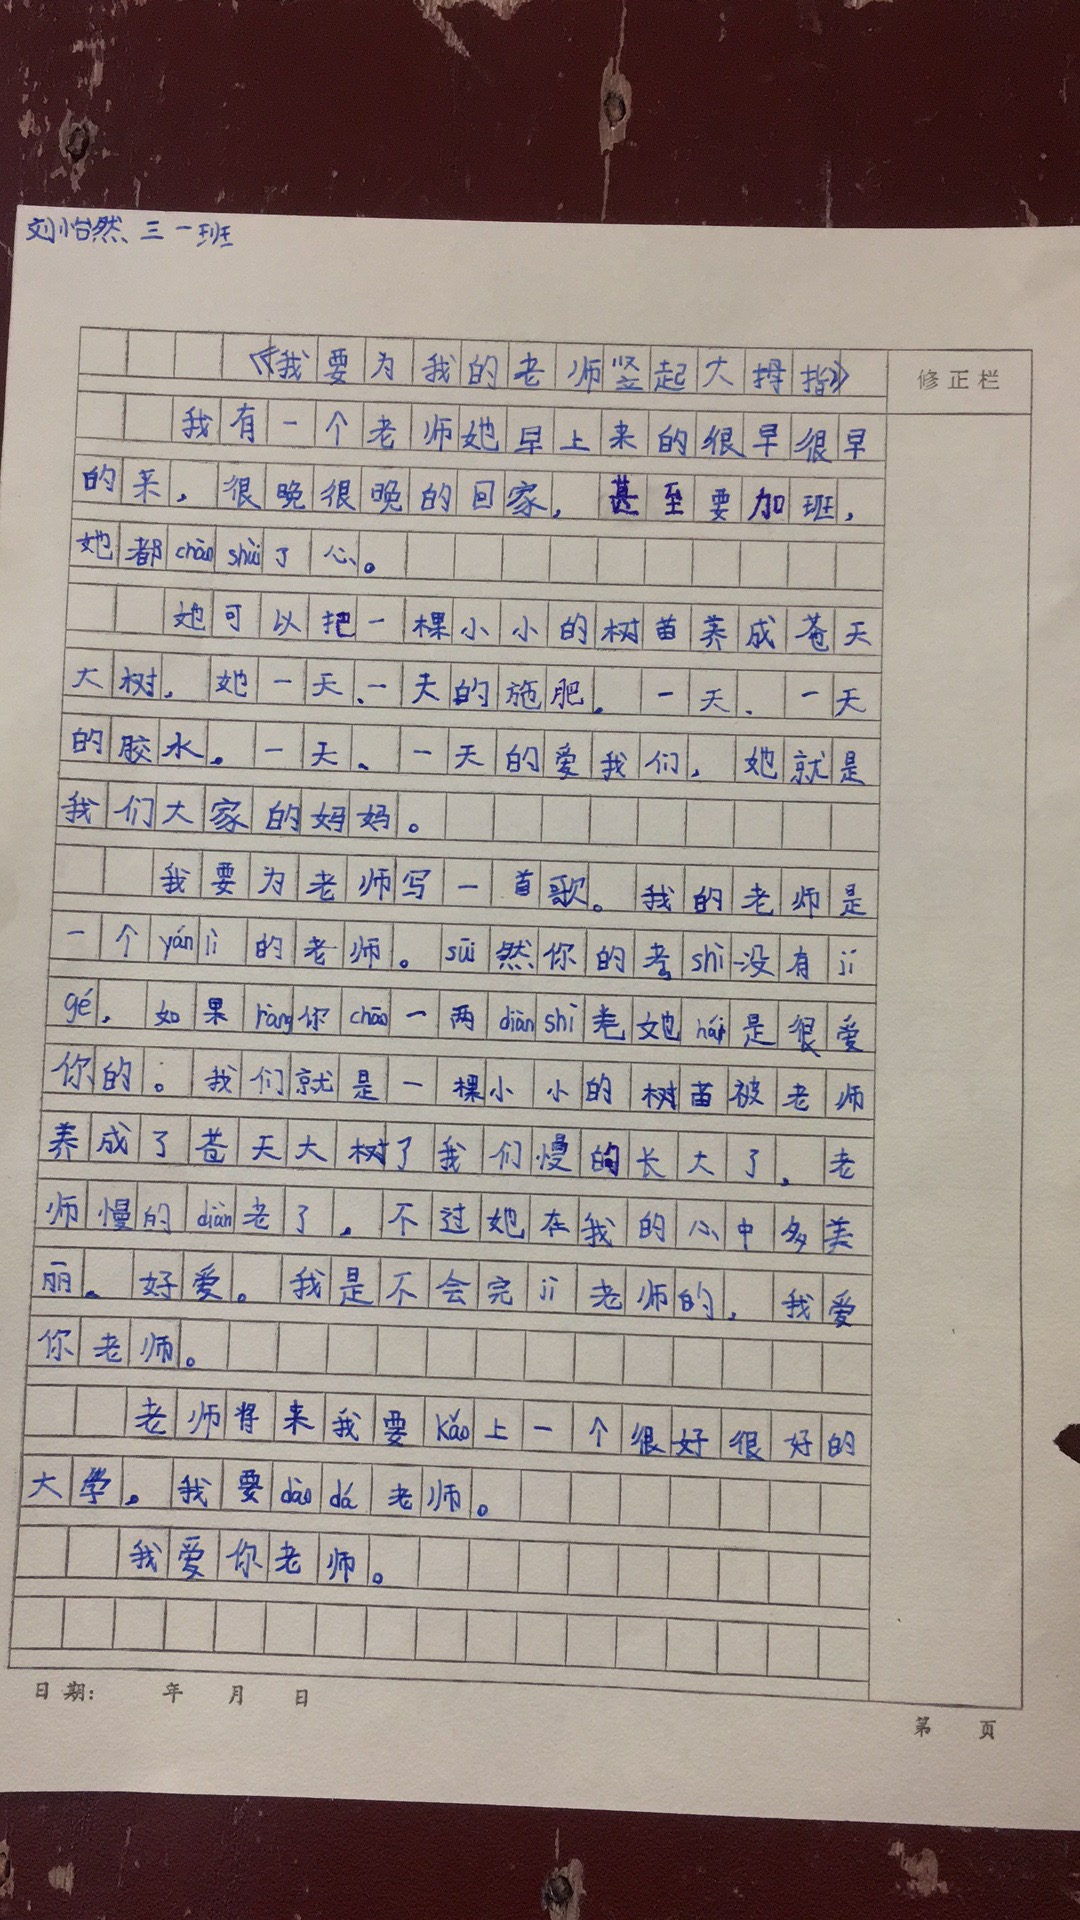 刘怡然、三一班
《我要为我的老师竖起大拇指》
修正栏
我有一个老师她早上来的很早很早
的来，很晚很晚的回家，甚至要加班，
她都chāo shuì了心。
她可以把一棵小小的树苗养成苍天
大树，她一天、一天的施肥。一天、一天
的胶水。一天、一天的爱我们，她就是
我们大家的妈妈。
我要为老师写一首歌。我的老师是
一个yán lì的老师。suī然你的考shì没有jí
gé，如果ràng你chāo一两diǎn shí老她hái是很爱
你的。我们就是一棵小小的树苗被老师
养成了苍天大树了我们慢的长大了，老
师慢的diàn老了，不过她在我的心中多美
丽。好爱。我是不会完jì老师的，我爱
你老师。
老师将来我要kǎo上一个很好很好的
大学。我要dào dá老师。
我爱你老师。
日期： 年 月 日
第 页